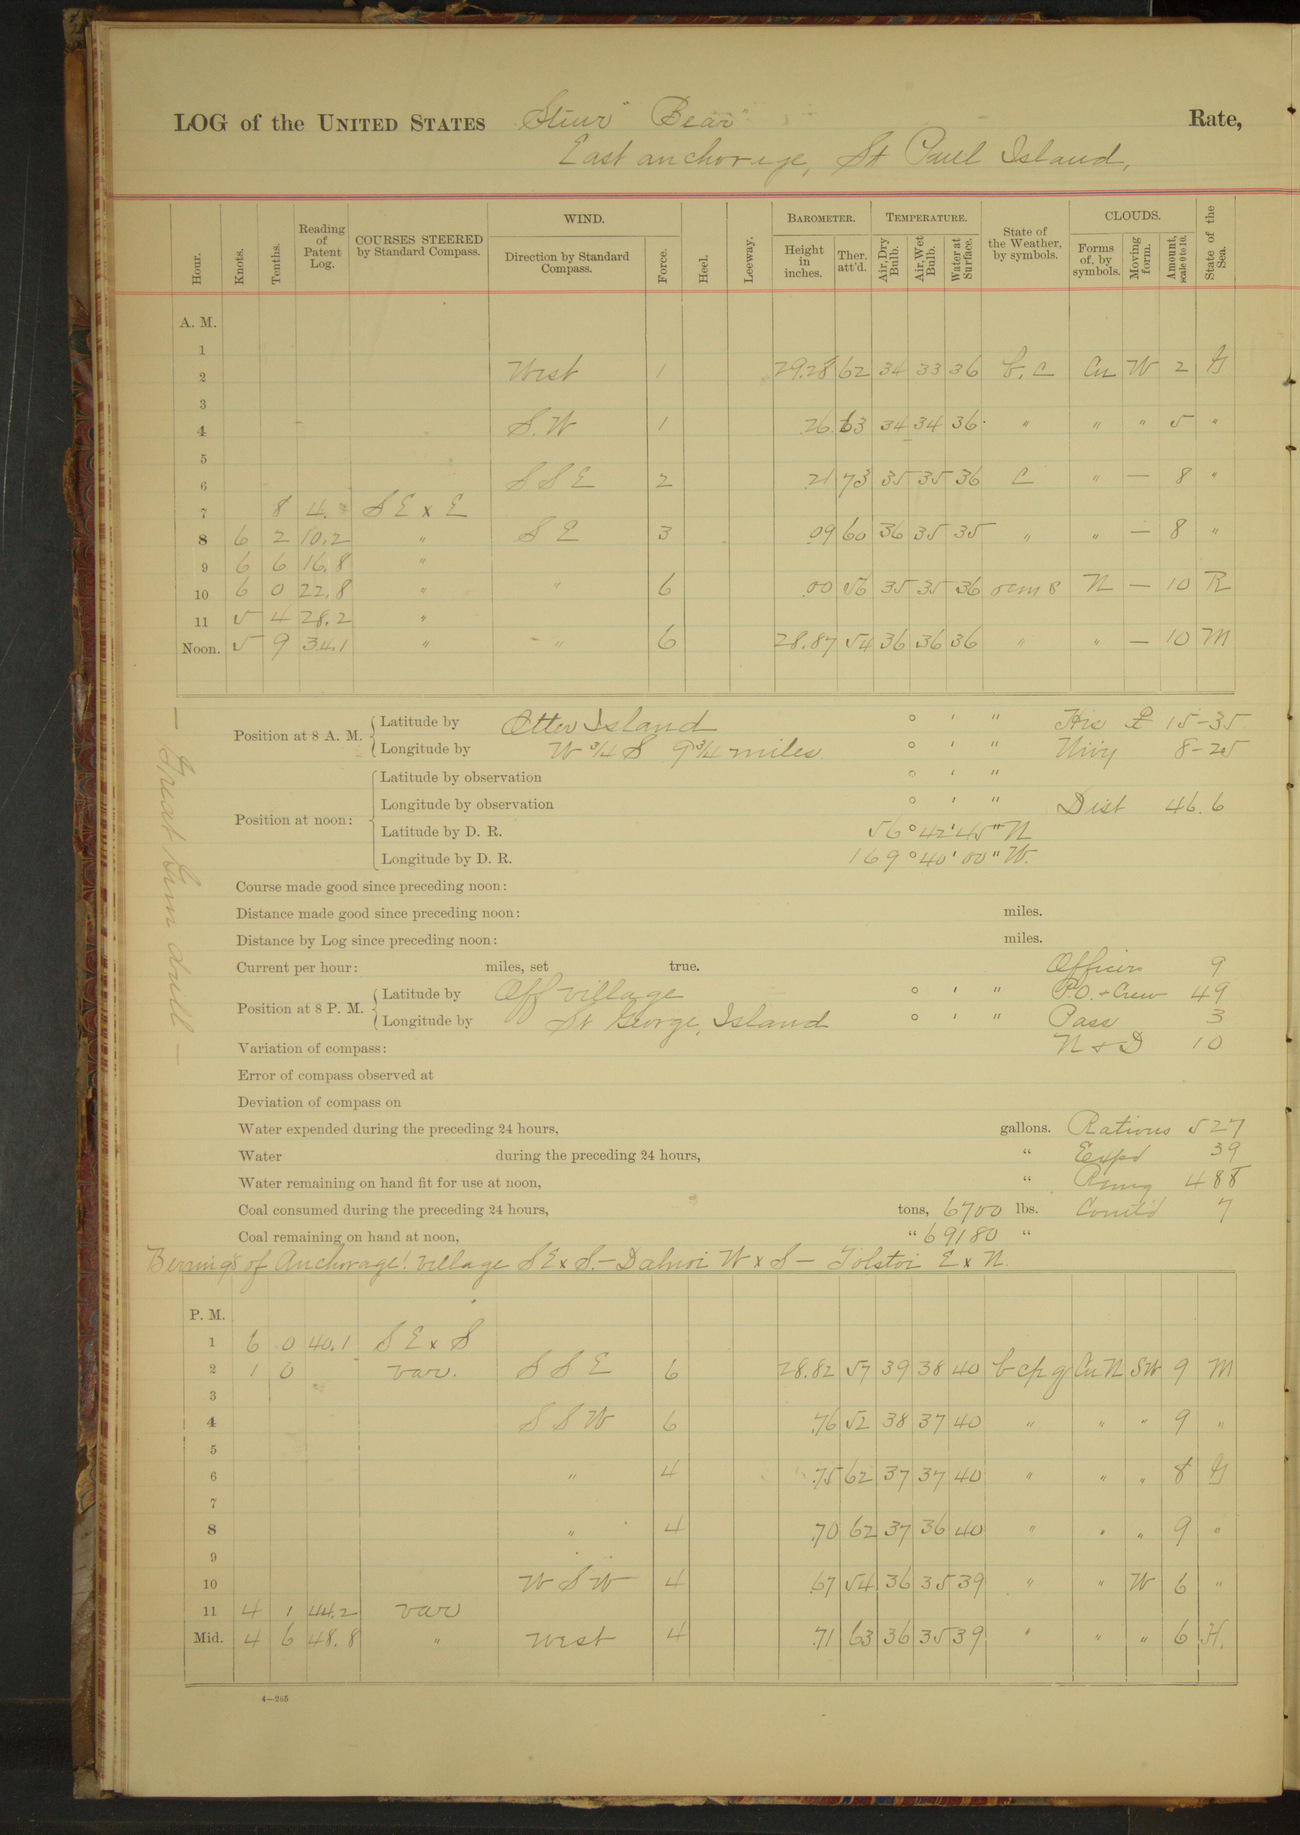 LOG of the UNITED STATES Stmr "Bear" Rate,
East anchorage, St Paul Island,
Hour. Knots. Tenths. Reading of Patent Log. COURSES STEERED by Standard Compass. WIND. Direction by Standard Compass. Force. Heel. Leeway. BAROMETER. Height in inches. Ther. att'd. TEMPERATURE. Air, Dry Bulb. Air, Wet Bulb. Water at Surface. State of the Weather, by symbols. CLOUDS. Forms of, by symbols. Moving form. Amount, scale 0 to 10. State of the Sea.
A. M.
1
2 West 1 29.28 62 34 33 36 b.c Cu W 2 S
3
4 S.W 1 .26 63 34 34 36 " " " 5 "
5
6 S S E 2 .21 73 35 35 36 C " — 8 "
7 8 4. S E x E
8 6 2 10.2 " S E 3 .09 60 36 35 35 " " — 8 "
9 6 6 16.8 "
10 6 0 22.8 " " 6 .00 56 35 35 36 ocms N — 10 R
11 5 4 28.2 "
Noon. 5 9 34.1 " " 6 28.87 54 36 36 36 " " — 10 M
Position at 8 A. M. Latitude by Otter Island ° ' " 15-35
Longitude by W ¾ S 9¾ miles ° ' " 8-25
Position at noon: Latitude by observation ° ' "
Longitude by observation ° ' " Dist 46.6
Latitude by D. R. 56° 42' 45" N
Longitude by D. R. 169° 40' 00" W.
— Great Gun drill —
Course made good since preceding noon:
Distance made good since preceding noon: miles.
Distance by Log since preceding noon: miles.
Current per hour: miles, set true. Officers 9
Position at 8 P. M. Latitude by Off village ° ' " P.O. + Crew 49
Longitude by St George, Island ° ' " Pass 3
Variation of compass: N + D 10
Error of compass observed at
Deviation of compass on
Water expended during the preceding 24 hours, gallons. Rations 527
Water during the preceding 24 hours, " Expd 39
Water remaining on hand fit for use at noon, " Remg 488
Coal consumed during the preceding 24 hours, tons, 6700 lbs. Comtd 7
Coal remaining on hand at noon, " 69180 "
Bearings of Anchorage! Village S E x S. — Dalnoi W x S — Tolstoi E x N.
P. M.
1 6 0 40.1 S E x S
2 1 0 var. S S E 6 28.82 57 39 38 40 bcpq Cu N SW 9 M
3
4 S S W 6 .76 52 38 37 40 " " " 9 "
5
6 " 4 .75 62 37 37 40 " " " 8 S
7
8 " 4 .70 62 37 36 40 " " " 9 "
9
10 W S W 4 .67 54 36 35 39 " " W 6 "
11 4 1 44.2 var
Mid. 4 6 48.8 " West 4 .71 63 36 35 39 " " " 6 H.
4—265